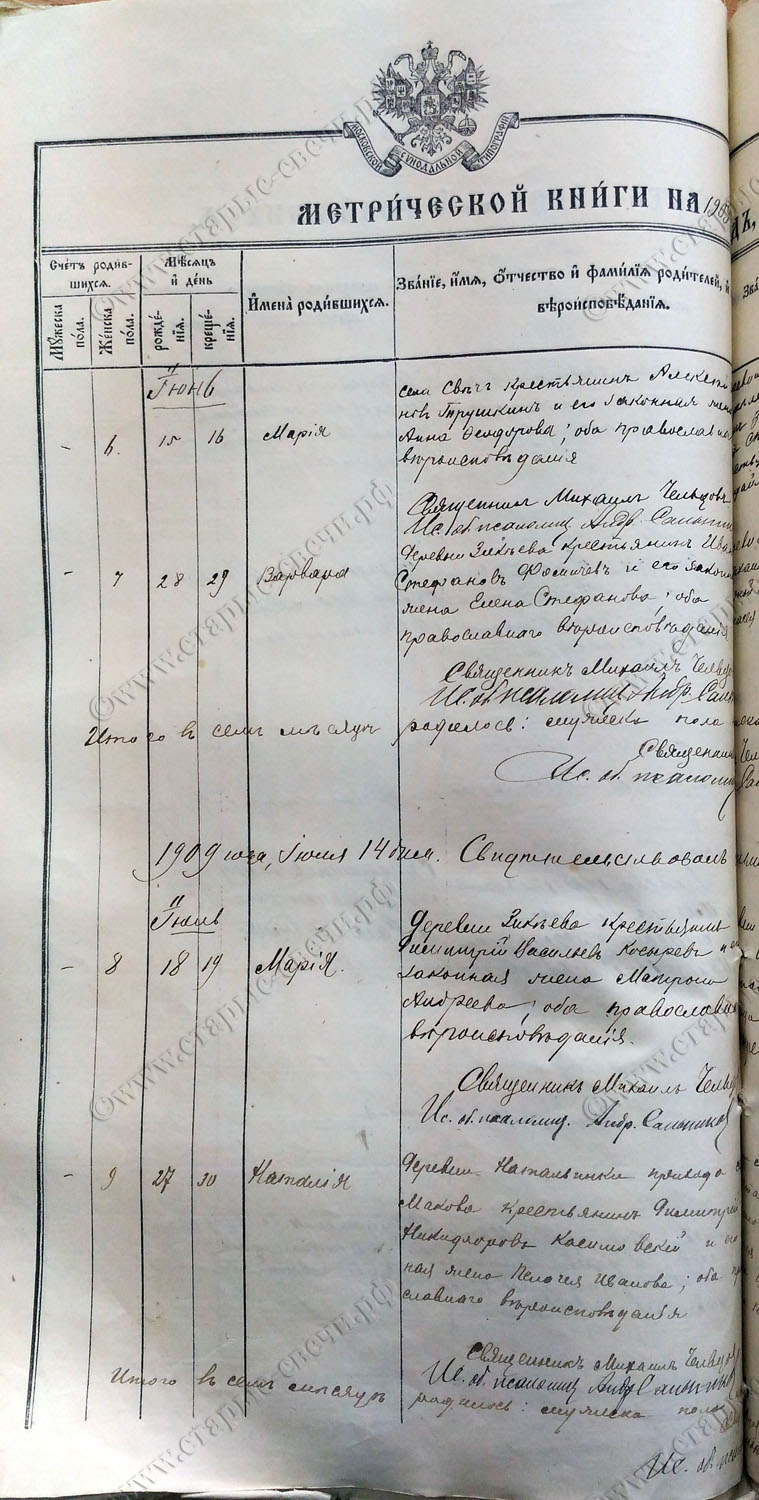 МОСКОВСКОЙ СѴНОДАЛЬНОЙ ТИПОГРАФІИ
МЕТРИ́ЧЕСКОЙ КНИ́ГИ НА 190
Сче́тъ роди́вшихся.
Мꙋжеска по́ла.
Же́нска по́ла.
Мѣ́сяцъ и де́нь
рожде́нїя.
креще́нїя.
Имена̀ роди́вшихся.
Зва́нїе, и́мя, о́тчество и фами́лїя роди́телей, и
вѣроисповѣ́данїя.
Іюнь
- 6. 15 16 Марія
села Свечи крестьянинъ Алексей
новъ Трушкинъ и его законная жена
Анна Ѳеодорова; оба православна
вѣроисповѣданія
Священникъ Михаилъ Чельцовъ
Ис. об. псаломщ. Андр.
- 7 28 29 Варвара
Деревни Зикѣева крестьянинъ Ива
Стефановъ Фомичевъ и его закон
жена Елена Стефанова; оба
православнаго вѣроисповѣданія
Священникъ Михаилъ Чельцо
Ис. об. псаломщ. Андр.
Итого въ семъ мѣсяцѣ родилось: мужеска пола
Священник
Ис. об. псаломщ
1909 года, Іюля 14 дня. Свидѣтельствовалъ
Іюль
- 8 18 19 Марія.
Деревни Зикѣева крестьянинъ
Димитрій Васильевъ Косыревъ и е
законная жена Матрона
Андреева; оба православна
вѣроисповѣданія.
Священникъ Михаилъ Чельц
Ис. об. псаломщ. Андр.
- 9 27 30 Наталія
Деревни Натальинки прихода с
Макова крестьянинъ Димитрій
Никифоровъ Касимовскій и его
ная жена Пелагея Иванова; оба пра
славнаго вѣроисповѣданія
Священникъ Михаилъ Чельцо
Ис. об. псаломщ Андр
Итого въ семъ мѣсяцѣ родилось: мужеска пола
Ис. об. пса
©www.старые-свечи.рф